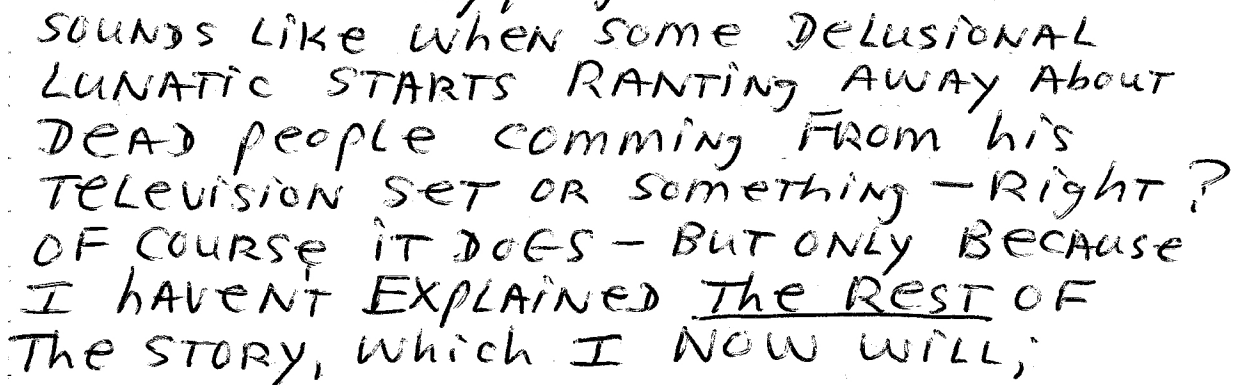 SOUNDS Like When Some DeLusioNAL
LUNATic STARTS RANTiNg AWAY AbouT
DeAD peopLe comming FRom his
TeLevisioN SeT OR SomethiNg – RighT ?
OF COURSe iT DOES – BUT ONLY BecAuse
I hAveN'T EXpLAiNeD The ResT OF
The STORY, Which I NOW WiLL;